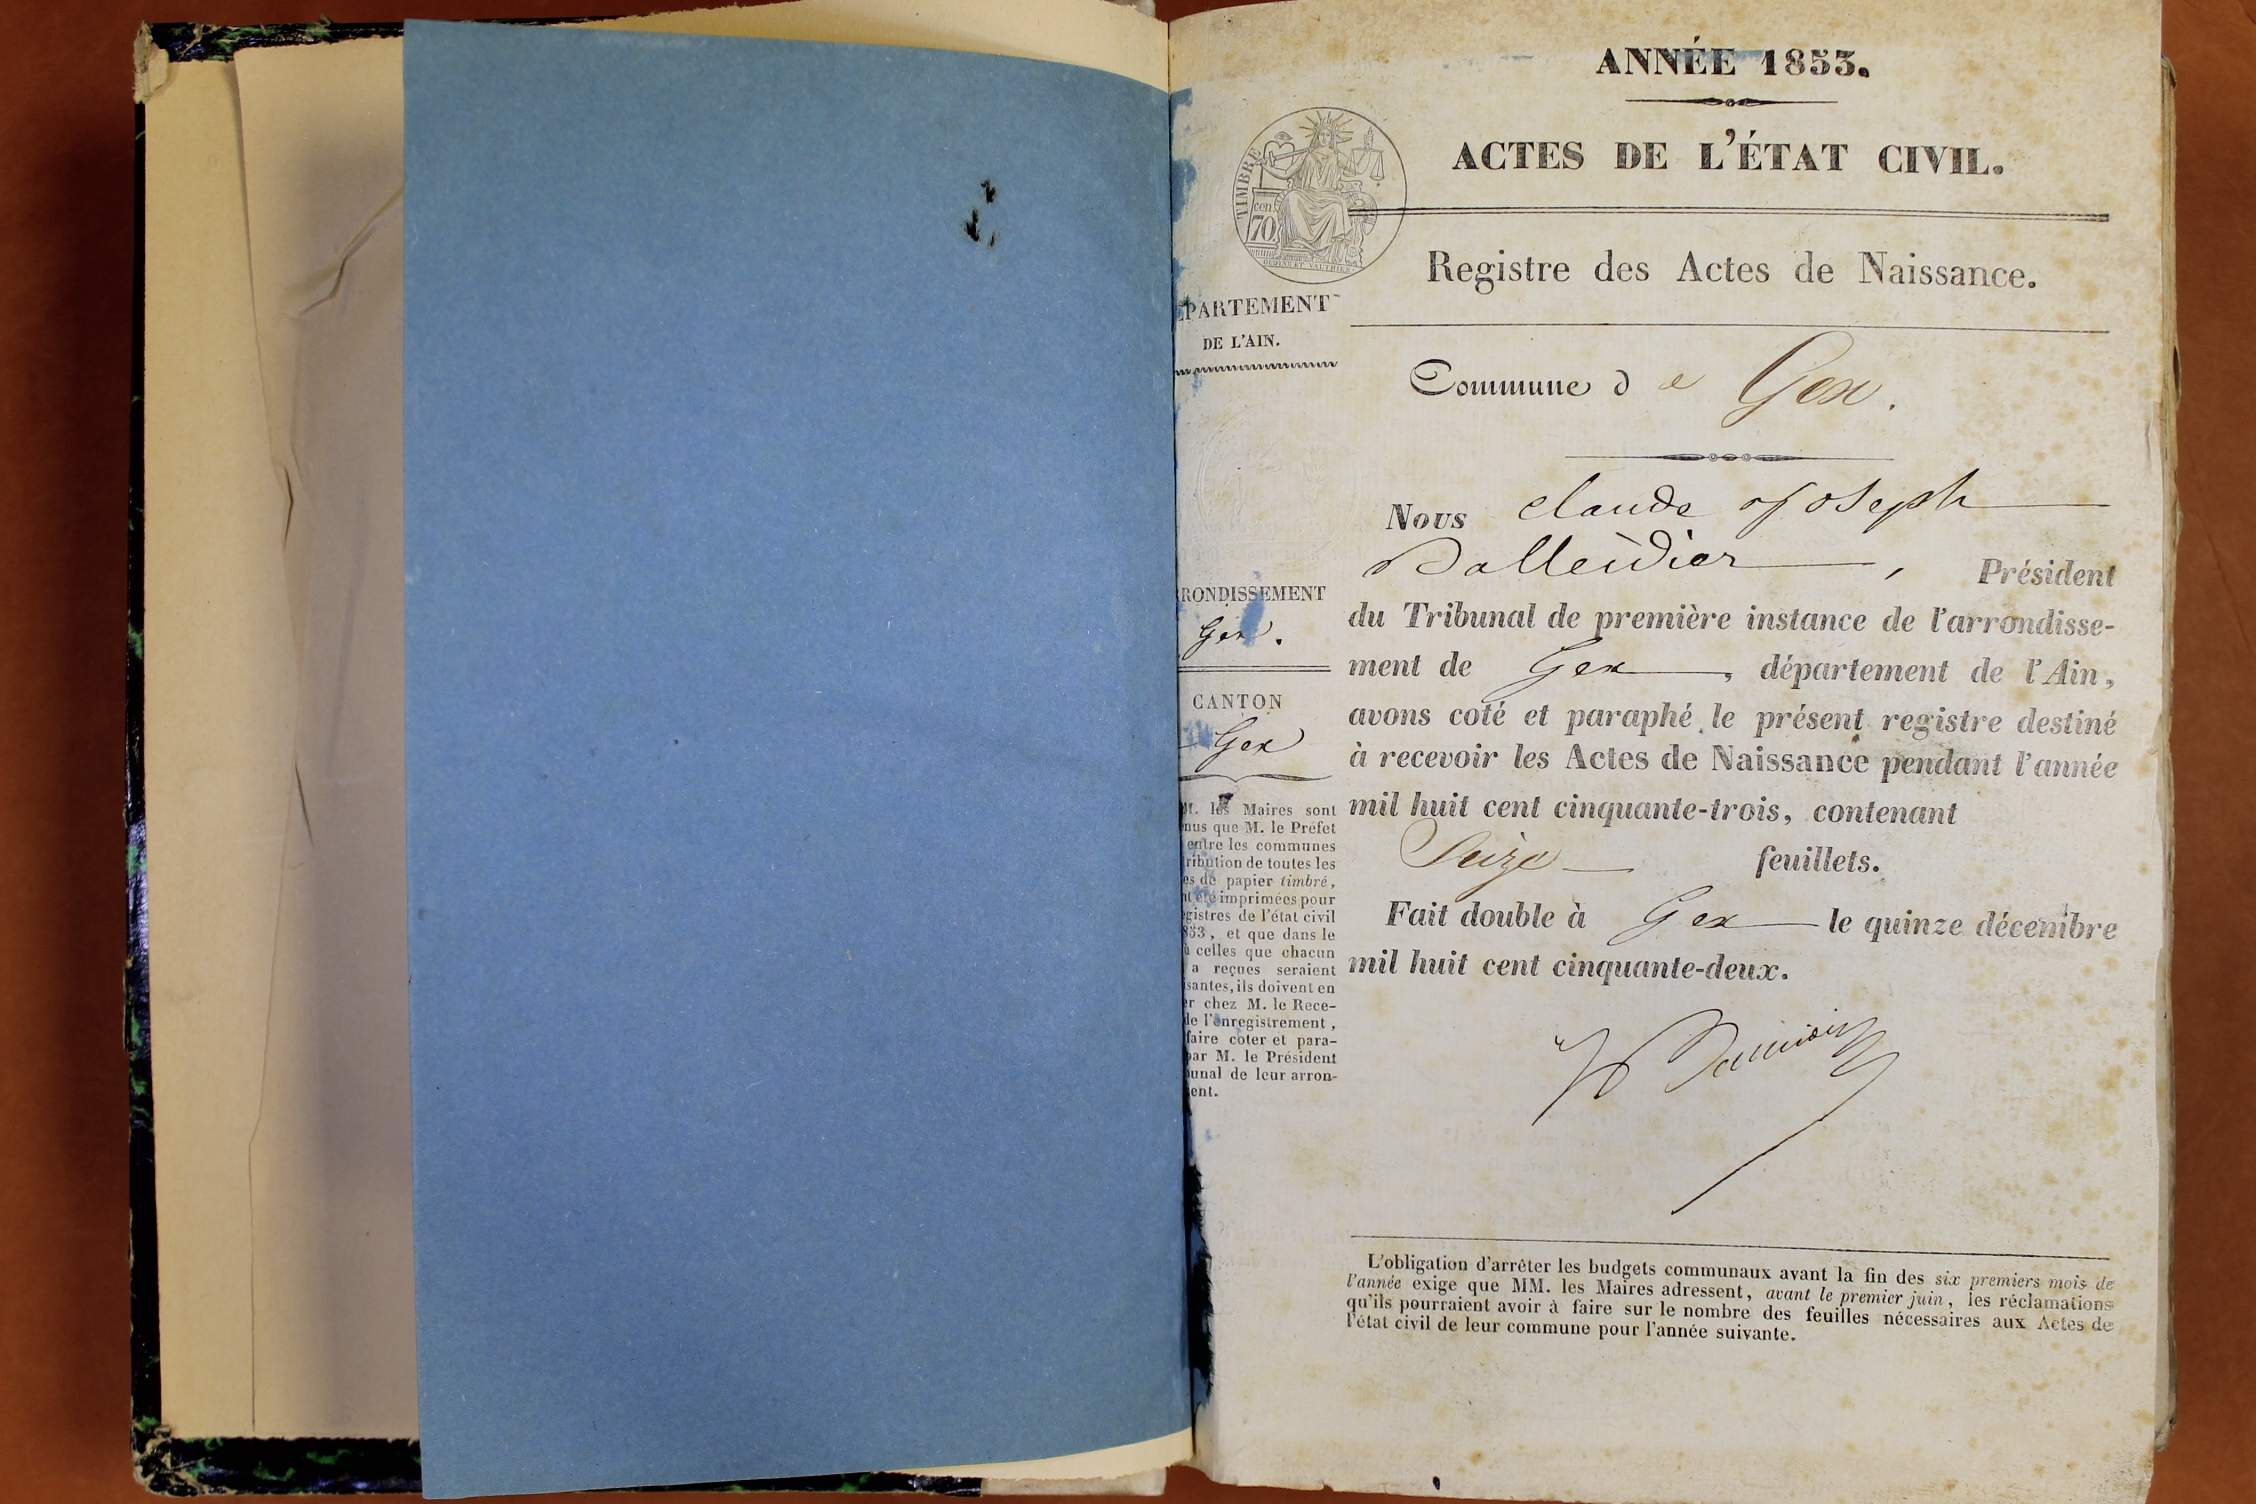 ANNÉE 1853.
ACTES DE L'ÉTAT CIVIL.
TIMBRE
cen
70
Registre des Actes de Naissance.
ÉPARTEMENT
DE L'AIN.
Commune de Gex.
Nous Claude Joseph
Balleidier, Président
du Tribunal de première instance de l'arrondisse-
ment de Gex, département de l'Ain,
avons coté et paraphé le présent registre destiné
à recevoir les Actes de Naissance pendant l'année
mil huit cent cinquante-trois, contenant
Seize feuillets.
Fait double à Gex le quinze décembre
mil huit cent cinquante-deux.
RONDISSEMENT
Gex.
CANTON
Gex
M. les Maires sont
nus que M. le Préfet
entre les communes
ribution de toutes les
es de papier timbré,
nt été imprimées pour
egistres de l'état civil
853, et que dans le
ù celles que chacun
a reçues seraient
isantes, ils doivent en
er chez M. le Rece-
de l'enregistrement,
faire coter et para-
par M. le Président
bunal de leur arron-
ent.
L'obligation d'arrêter les budgets communaux avant la fin des six premiers mois de
l'année exige que MM. les Maires adressent, avant le premier juin, les réclamations
qu'ils pourraient avoir à faire sur le nombre des feuilles nécessaires aux Actes de
l'état civil de leur commune pour l'année suivante.